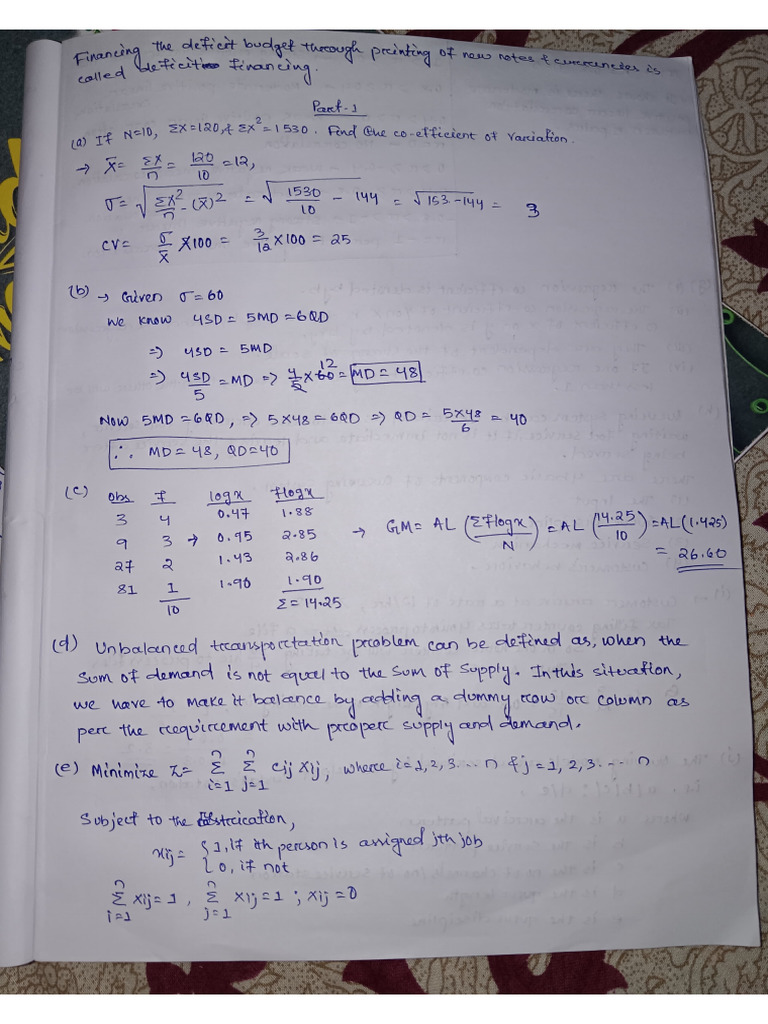 Financing the deficit budget through printing of new notes & currencies is
called deficit financing.
Part-1
(a) If N=10, ΣX=120, & ΣX²=1530. Find the co-efficient of variation.
→ X̄ = ΣX/n = 120/10 = 12,
σ = √(ΣX²/n - (X̄)²) = √(1530/10 - 144) = √(153-144) = 3
CV = σ/X̄ × 100 = 3/12 × 100 = 25
(b) → Given σ = 60
We know 4SD = 5MD = 6QD
⇒ 4SD = 5MD
⇒ 4SD/5 = MD ⇒ 4/5 × 60 12 = MD = 48
Now 5MD = 6QD, ⇒ 5×48 = 6QD ⇒ QD = 5×48/6 = 40
∴ MD = 48, QD = 40
(c) Obs f logx flogx
3 4 0.47 1.88
9 3 → 0.95 2.85 → GM = AL (Σflogx/N) = AL (14.25/10) = AL (1.425)
27 2 1.43 2.86 = 26.60
81 1 1.90 1.90
10 Σ = 14.25
(d) Unbalanced transportation problem can be defined as, when the
sum of demand is not equal to the sum of supply. In this situation,
we have to make it balance by adding a dummy row or column as
per the requirement with proper supply and demand.
(e) Minimize z = Σ(i=1 to n) Σ(j=1 to n) Cij Xij, where i = 1, 2, 3 ... n & j = 1, 2, 3 ... n
Subject to the
xij = { 1, if ith person is assigned jth job
{ 0, if not
Σ(i=1 to n) Xij = 1, Σ(j=1 to n) Xij = 1 ; Xij = 0